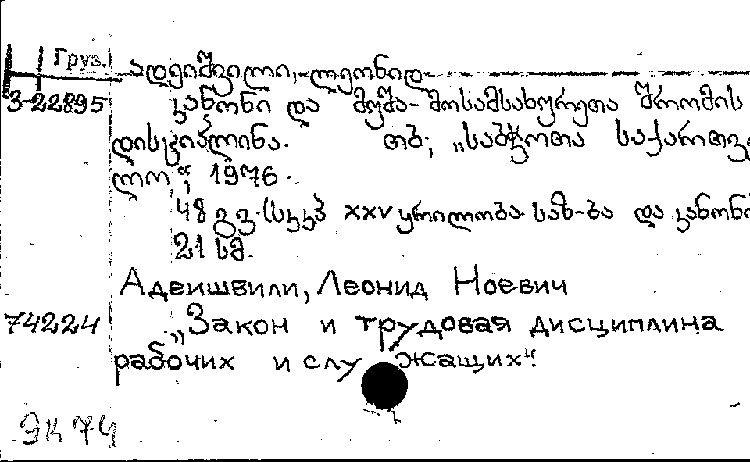 Груз.
ადეიშვილი, ლეონიდ
3-22895 კანონი და მუშა-მოსამსახურეთა შრომის
დისციპლინა. თბ; „საბჭოთა საქართვე
ლო“; 1976.
48 გვ. (სკკპ XXV ყრილობა. საზ-ბა და კანონი
21 სმ.
Адеишвили, Леонид Ноевич
74224 „Закон и трудовая дисциплина
рабочих и служащих“.
9к74